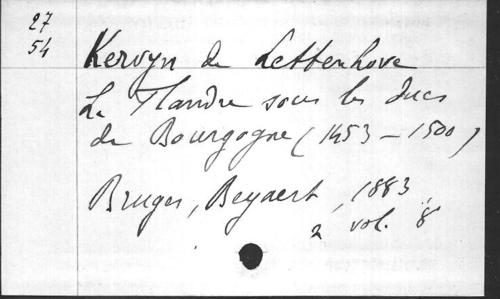 27
54
Kervyn de Lettenhove
La Flandre sous les ducs
de Bourgogne (1453-1500)
Bruges, Beyaert, 1883
2 vol. 8